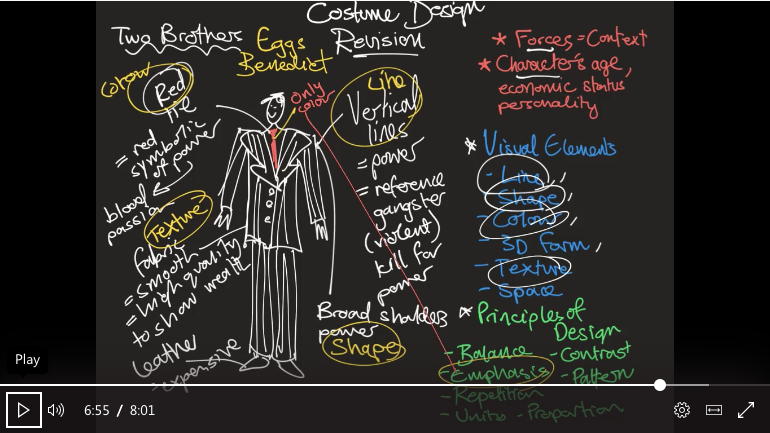 Costume Design
Revision
Two Brothers
Eggs
Benedict
colour
Red
tie
= red
symbolic
of power
blood
passion
Texture
fabric
= smooth
= high quality
to show wealth
leather
= expensive
Only
colour
Line
Vertical
lines
= power
= reference
gangster
(violent)
kill for
power
Broad shoulders
power
Shape
* Forces = Context
* Character's age,
economic status
personality
* Visual Elements
- Line
- Shape
- Colour
- 3D form
- Texture
- Space
* Principles of
Design
- Balance
- Contrast
- Emphasis
- Pattern
- Repetition
- Unity
- Proportion
Play
6:55 / 8:01